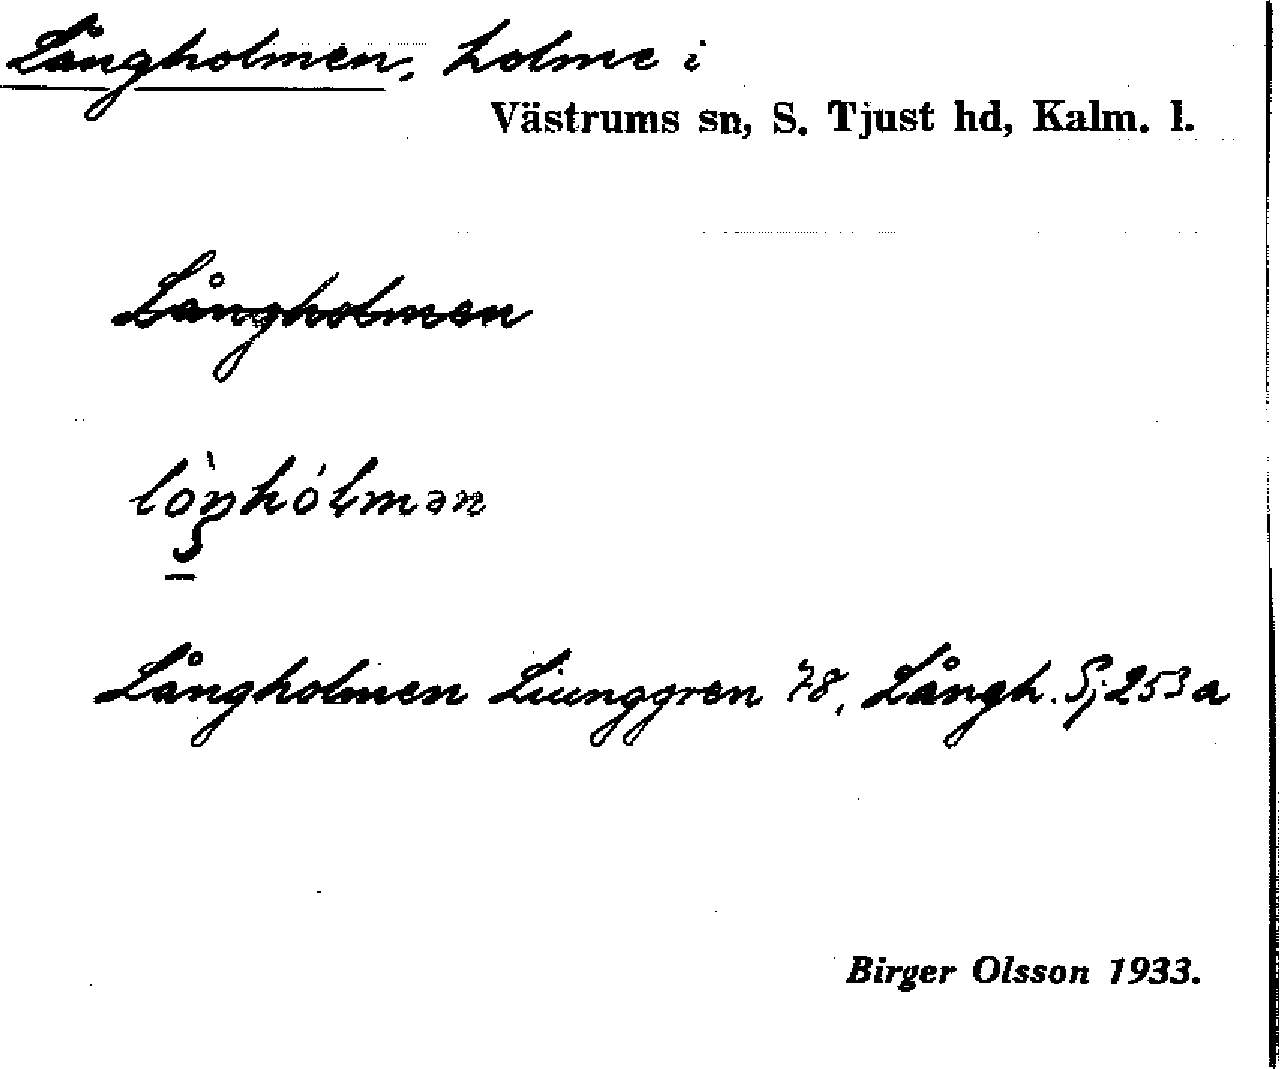 Långholmen, holme i
Västrums sn, S. Tjust hd, Kalm. l.
Långholmen
lòŋhólmən
Långholmen Liunggren 78, Långh. S; 253 a
Birger Olsson 1933.